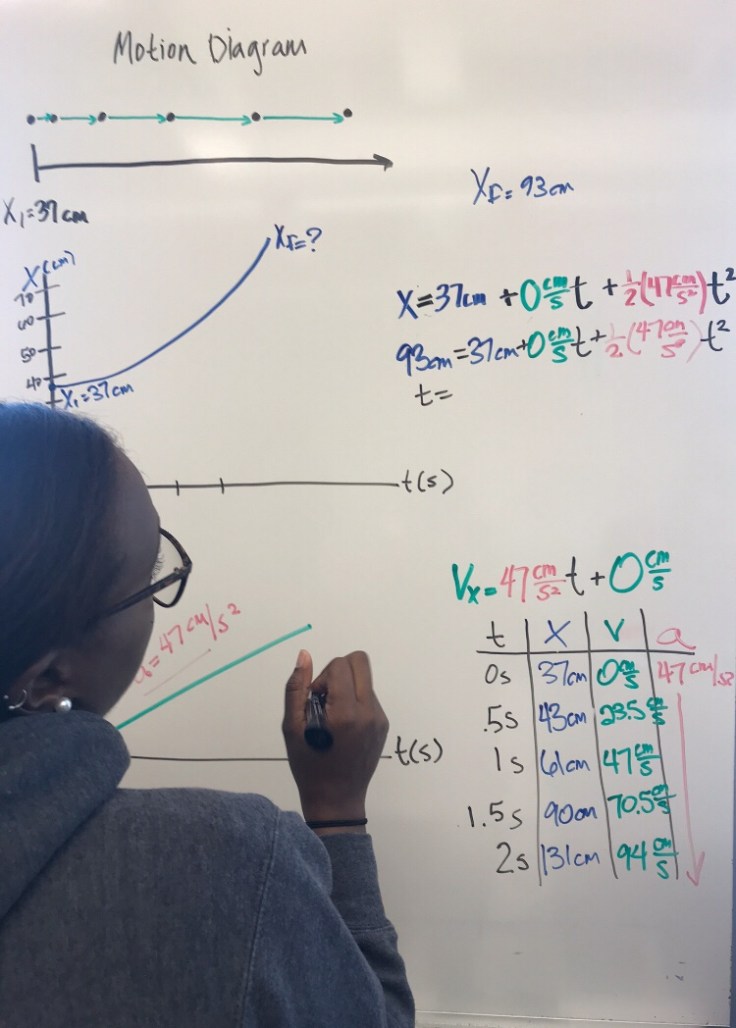 Motion Diagram
X₁=37cm
X(cm)
70
60
50
40
X₁=37cm
X_F=?
t(s)
X_F=93cm
X=37cm +0 cm/s t + 1/2(47 cm/s²)t²
93cm=37cm+0 cm/s t+ 1/2(47 cm/s²)t²
t=
a=47 cm/s²
t(s)
Vx=47 cm/s² t+0 cm/s
t X V a
0s 37cm 0 cm/s 47 cm/s²
.5s 43cm 23.5 cm/s
1s 61cm 47 cm/s
1.5s 90cm 70.5 cm/s
2s 131cm 94 cm/s